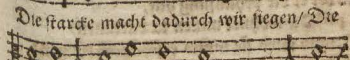 Die ſtarcke macht dadurch wir ſiegen/ Die